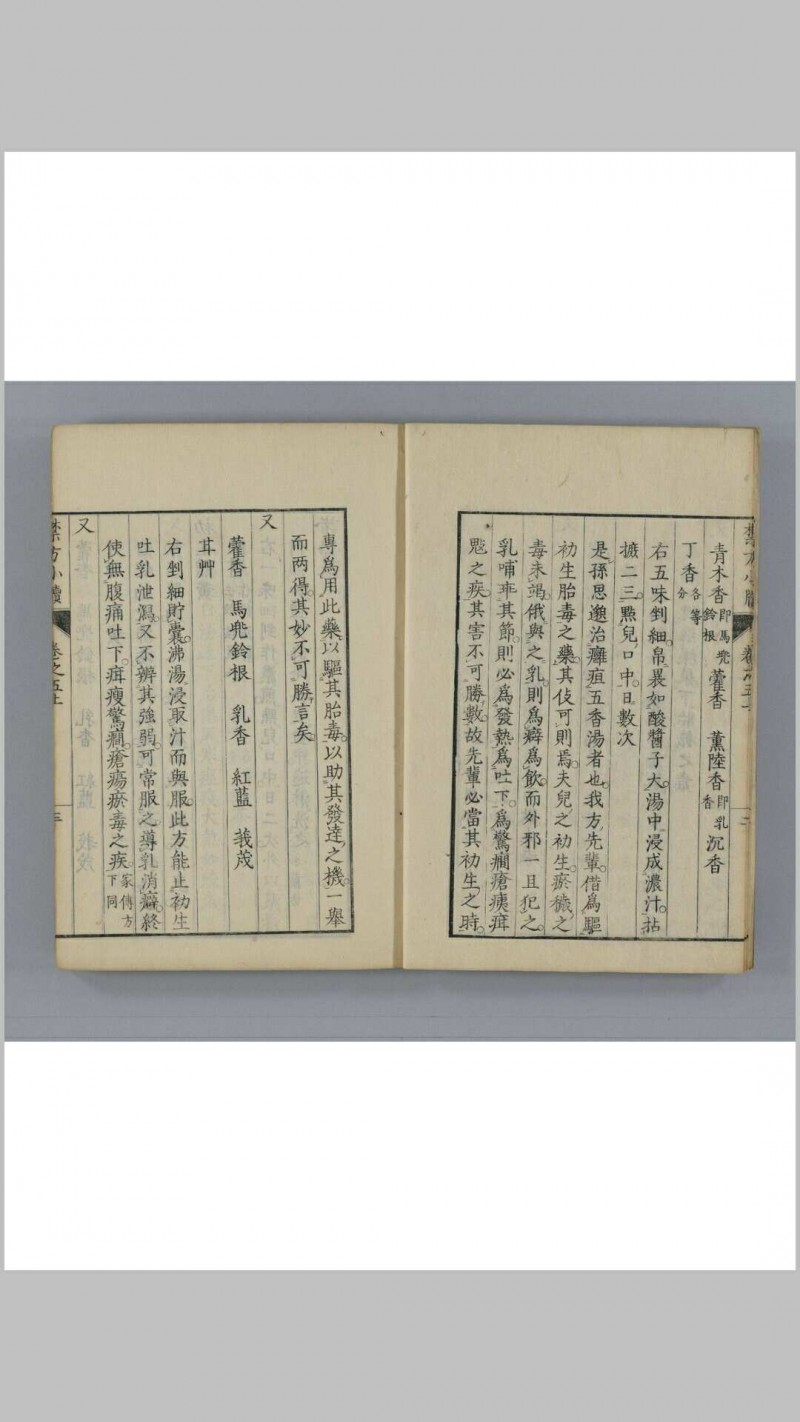 青木香即馬兜鈴根 藿香 薰陸香即乳香 沉香
丁香各等分
右五味剉細帛裹如酸醬子大湯中浸成濃汁拈
摭二三㸃兒口中日數次
是孫思邈治癰疽五香湯者也我方先輩借爲驅
初生胎毒之藥其伎可則焉夫兒之初生瘀穢之
毒未竭俄與之乳則爲癖爲飲而外邪一且犯之
乳哺乖其節則必爲發熱爲吐下爲驚癎瘡痍疳
之疾其害不可勝數故先輩必當其初生之時
專爲用此藥以驅其胎毒以助其發達之機一舉
而两得其妙不可勝言矣
又
藿香 馬兜鈴根 乳香 紅藍 莪茂
艸
右剉細貯囊沸湯浸取汁而與服此方能止初生
吐乳泄瀉又不辨其強弱可常服之導乳消癖終
使無腹痛吐下疳瘦驚癎瘡瘍瘀毒之疾家傳方下同
又
禁方小牘 卷之五上